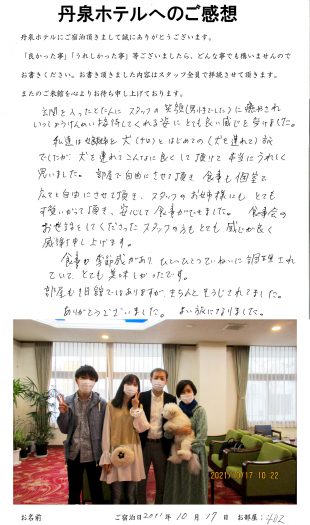 丹泉ホテルへのご感想
丹泉ホテルにご宿泊頂きまして誠にありがとうございます。
「良かった事」「うれしかった事」等ございましたら、どんな事でも構いませんので
お書きください。お書き頂きました内容はスタッフ全員で拝読させて頂きます。
またのご来館を心よりお待ち申し上げております。
玄関を入ったとたんに スタッフの笑顔 に癒やされ
いっしょうけんめい接待してくれる姿に とても良い感じを受けました。
私達は 犬 とはじめての (犬を連れて) 旅
でしたが、犬を連れてこんなに良くして頂けて 本当にうれしく
思いました。 部屋も自由にさせて頂き 食事も個室で
広々と自由にさせて頂き、スタッフのお姉様にも とても
可愛いがって頂き、安心して食事ができました。 食事会の
お世話をしてくださった スタッフの方も とても 感じが良く
感謝申し上げます。
食事も 季節感があり ひとつひとつていねいに調理され
ていて とても 美味しかったです。
部屋も 旧館ではありますが、きちんとそうじされてました。
ありがとうございました。 よい旅になりました。
2021/10/17 10:22
お名前 ご宿泊日2021年 10月 17日 お部屋: 402